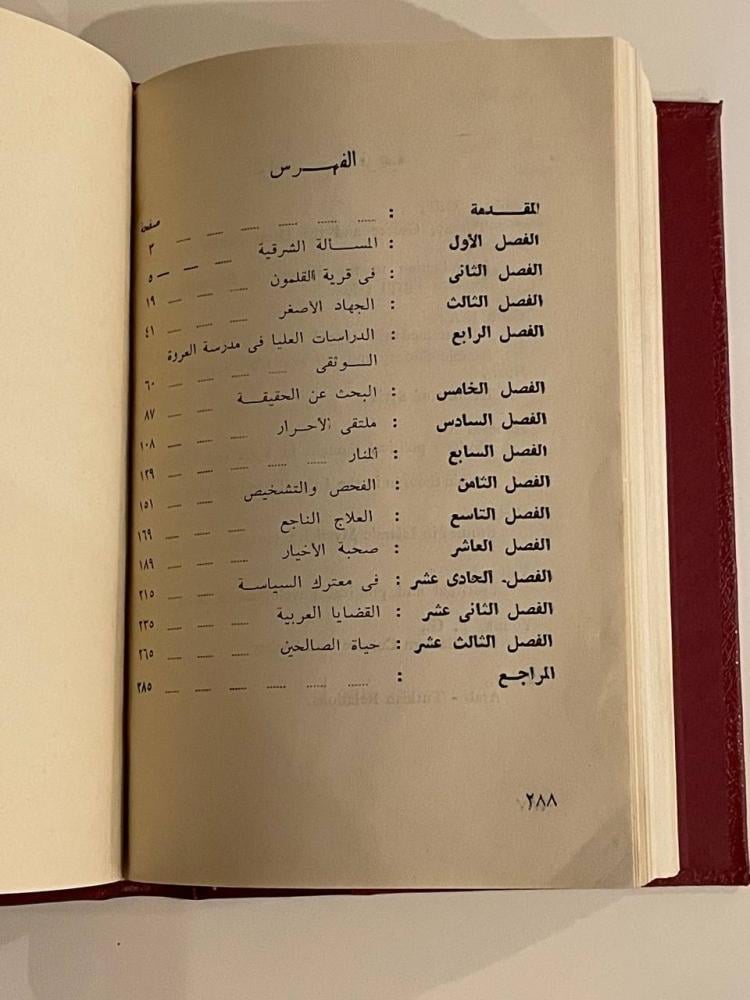 الفهرس
صفحة
المقدمة : ٣
الفصل الأول : المسالة الشرقية ٥
الفصل الثانى : فى قرية القلمون ١٩
الفصل الثالث : الجهاد الأصغر ٤١
الفصل الرابع : الدراسات العليا فى مدرسة العروة
الوثقى ٦٠
الفصل الخامس : البحث عن الحقيقة ٨٧
الفصل السادس : ملتقى الأحرار ١٠٨
الفصل السابع : المنار ١٢٩
الفصل الثامن : الفحص والتشخيص ١٥١
الفصل التاسع : العلاج الناجع ١٦٩
الفصل العاشر : صحبة الأخيار ١٨٩
الفصل الحادى عشر : فى معترك السياسة ٢١٥
الفصل الثانى عشر : القضايا العربية ٢٣٥
الفصل الثالث عشر : حياة الصالحين ٢٦٥
المراجع : ٢٨٥
٢٨٨